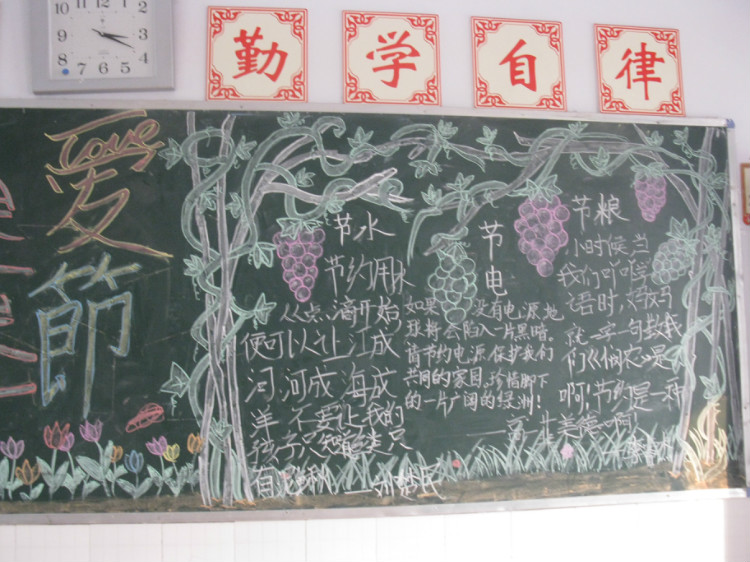 10 12 2
9 3
8 4
7 6 5
勤 学 自 律
爱
Love
節
节水
节约用水
从点滴开始,
便可以让江成
河 河成海成
洋 不要让我的
孩子只
自己
节
电
如果 没有电源地
球将会陷入一片黑暗。
请节约电源 保护我们
共同的家园。珍惜脚下
的一片广阔的绿洲!
节粮
小时候当
我们
语时,妈妈
就一字一句教我
们《悯农》是
啊!节约是一种
美德啊